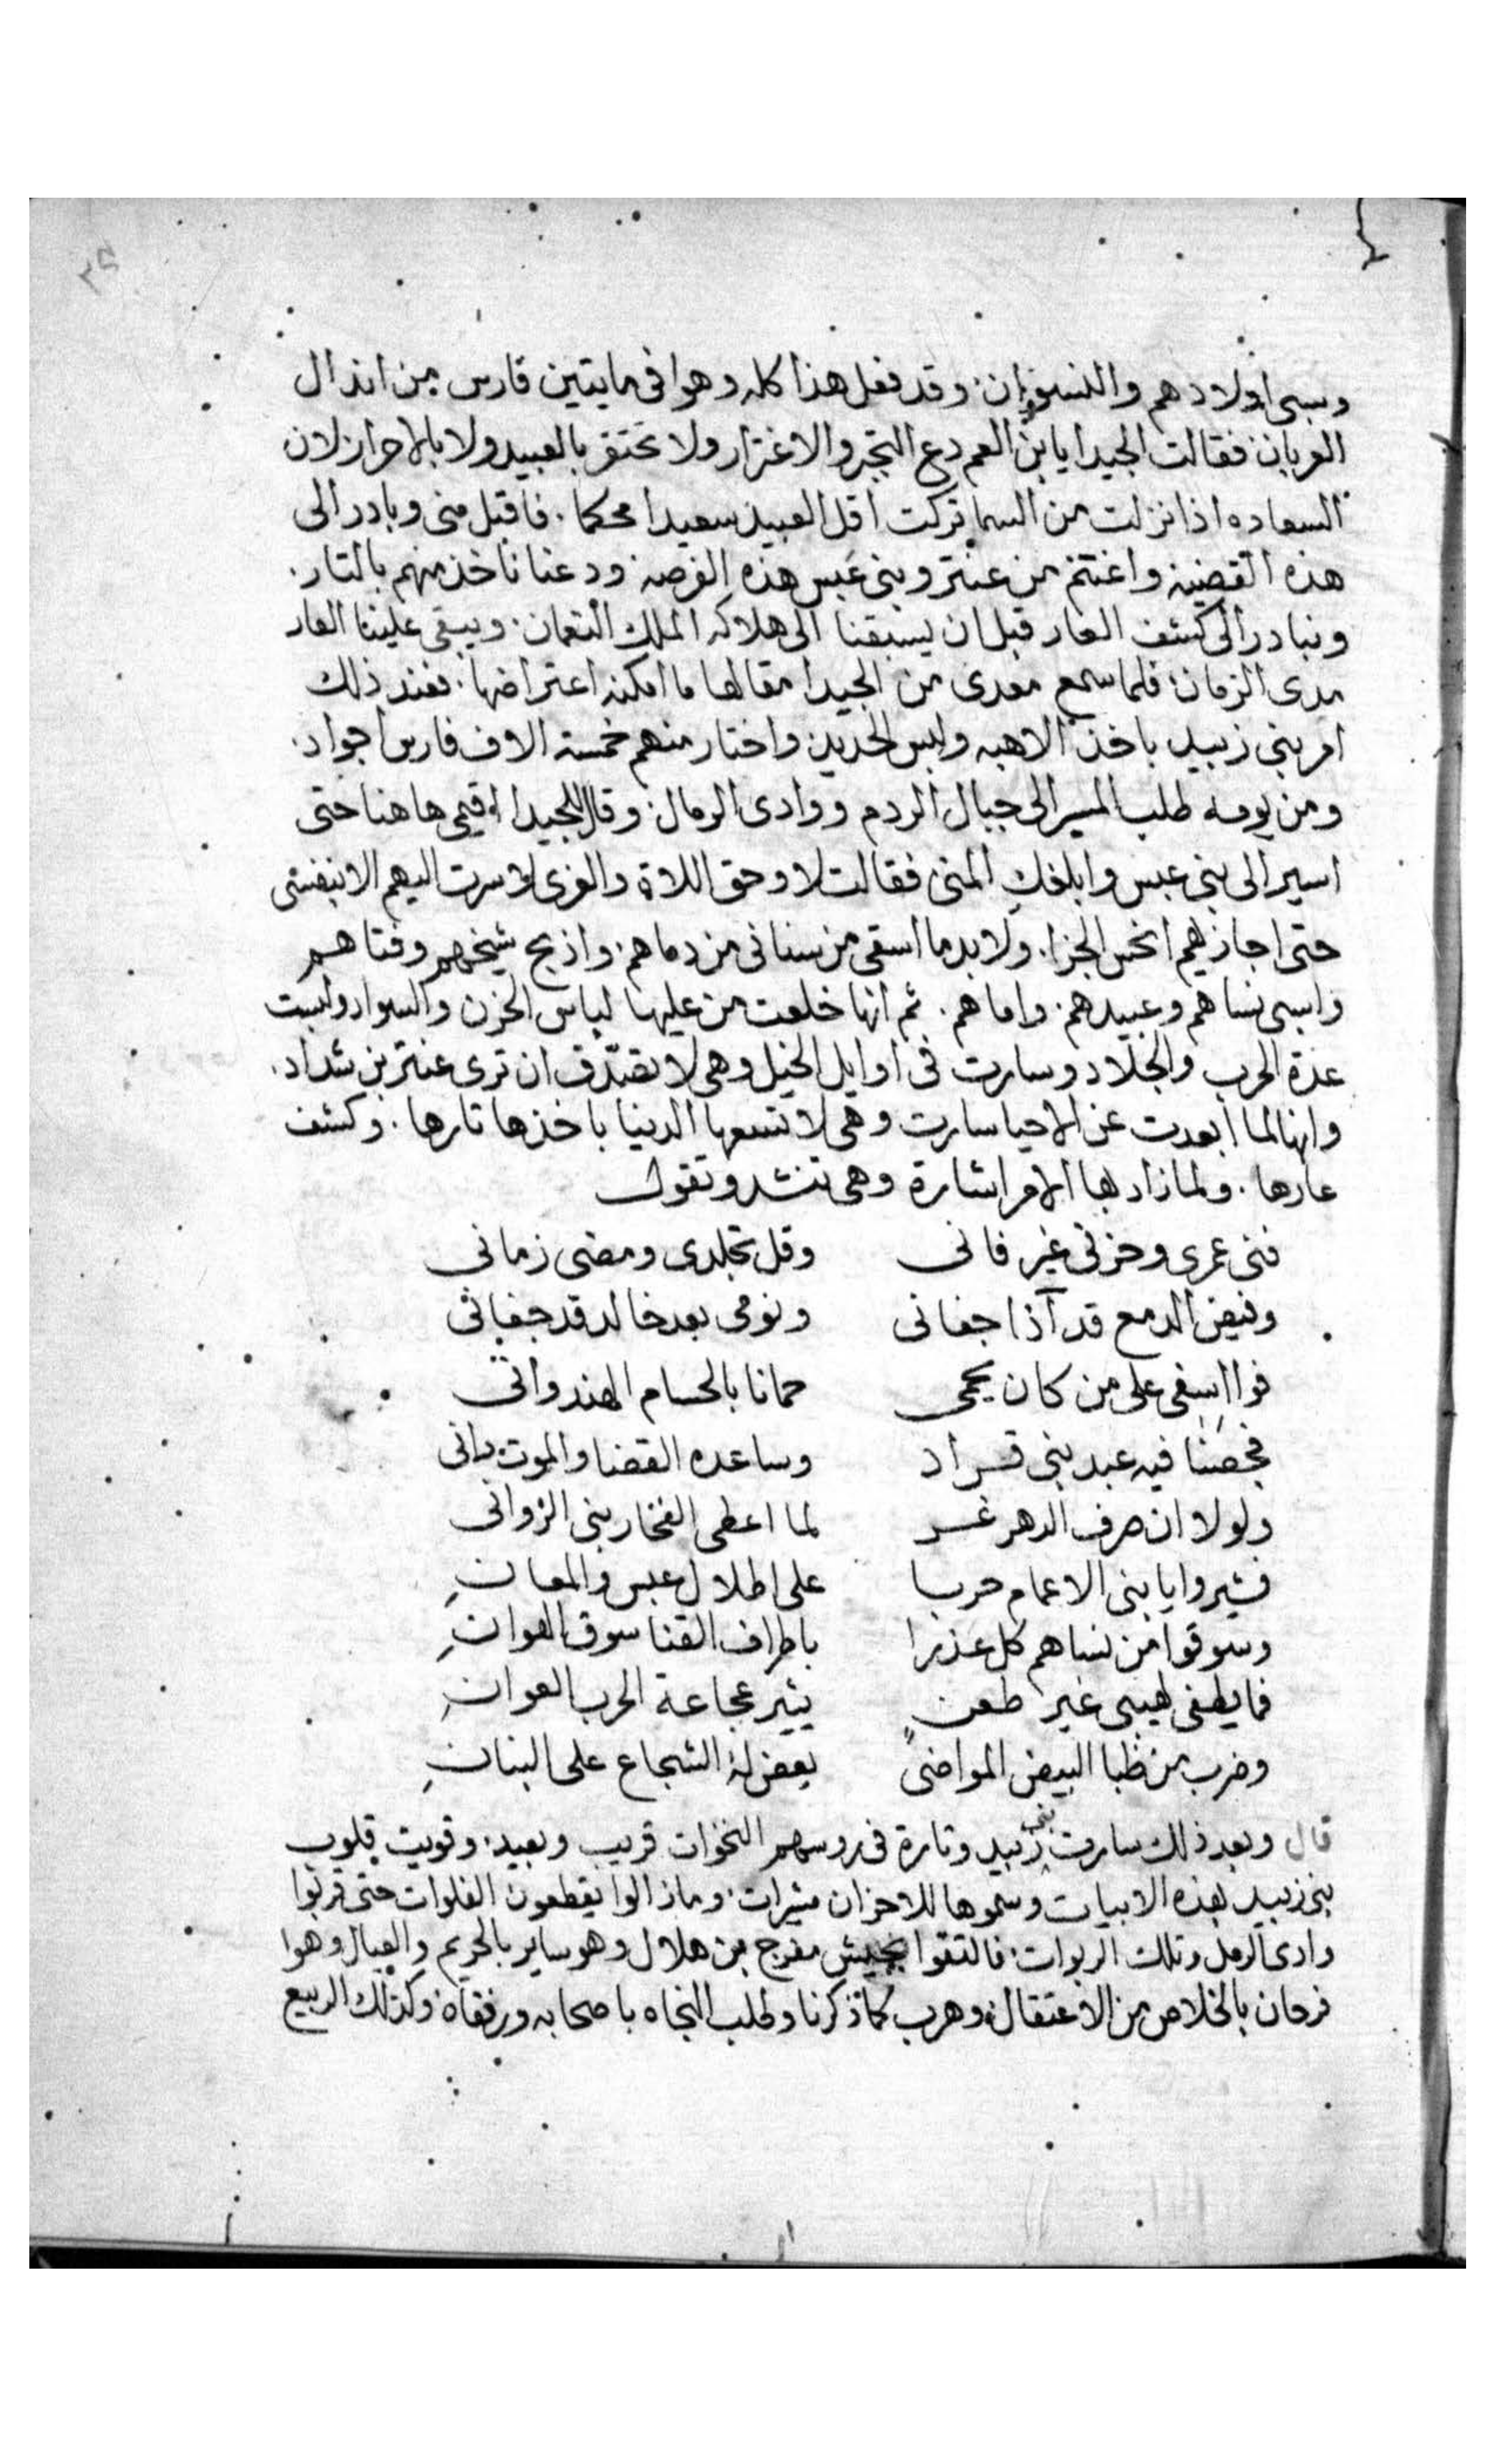 وسبى اولادهم والنسوان. وقد فعل هذا كله وهوا فى مايتين فارس من اندال
العربان فقالت الجيدا يابن العم دع التجبر والاغترار ولا تحتقر بالعبيد ولا بالاحرار لان
السعاده اذا نزلت من السما تركت اقل العبيد سعيدا محكما. فاقبل منى وبادر الى
هذه القضيه واغتنم من عنتر وبنى عبس هذه الفرصه ودعنا ناخذ منهم بالتار.
ونبادر الى كشف العار قبل ان يسبقنا الى هلاكه الملك النعمان. ويبقى علينا العار
مدى الزمان. فلما سمع معدى من الجيدا مقالها ما امكنه اعتراضها. فعند ذلك
امر بنى زبيد باخذ الاهبه ولبس الحديد واختار منهم خمسة الاف فارس اجواد.
ومن يومه طلب المسير الى جبال الردم ووادى الرمال. وقال للجيدا اقيمى هاهنا حتى
اسير الى بنى عبس وابلغك المنى فقالت لا وحق اللاة والعزى لا سرت اليهم الا بنفسى
حتى اجازيهم انحس الجزا. ولا بد ما اسقى من سنانى من دماهم. واذبح شيخهم وفتاهم
واسبى نساهم وعبيدهم. واماهم. ثم انها خلعت من عليها لباس الحزن والسواد ولبست
عدة الحرب والجلاد وسارت فى اوايل الخيل وهى لا تصدق ان ترى عنتر بن شداد.
وانها لما ابعدت عن الاحيا سارت وهى لا تسعها الدنيا باخذها تارها. وكشف
عارها. ولما زاد بها الامر اشارة وهى تنشد وتقول
فنى عمرى وحزنى غير فانى وقل تجلدى ومضى زمانى
وفيض الدمع قد آذا جفانى ونومى بعد خالد قد جفانى
فوا اسفى على من كان يحمى حمانا بالحسام الهندوانى
فجعنا فيه عبد بنى قراد وساعده القضا والموت دانى
ولولا ان صرف الدهر غر لما اعطى الفخار بنى الزوانى
فسيروا يا بنى الاعمام حربا على اطلال عبس والمعانِ
وسوقوا من نساهم كل عذرا باطراف القنا سوق الهوانِ
فما يطفى لهيبى غير طعن يثير عجاجة الحرب العوانِ
وضرب من ظبا البيض المواضى يعض له الشجاع على البنانِ
قال وبعد ذلك سارت بنى زبيد وتارة فى روسهم النخوات قريب وبعيد. وقويت قلوب
بنى زبيد بهذه الابيات وسموها للاحزان مثيرات. وما زالوا يقطعون الفلوات حتى قربوا
وادى الرمل وتلك الربوات. فالتقوا بجيش مفرج بن هلال وهو ساير بالحريم والعيال وهوا
فرحان بالخلاص من الاعتقال. وهرب كما ذكرنا وطلب النجاه باصحابه ورفقاه. وكذلك الربيع